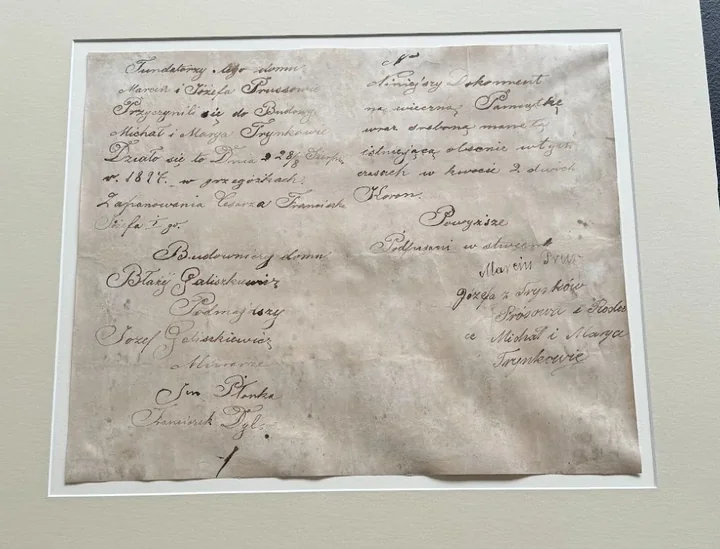 Fundatorzy tego domu
Marcin i Józefa Prussowie
Przyczynili się do Budowy
Michał i Marya Trynkowie
Działo się to Dnia 28/8 Sierp.
r. 1897. w grzegórzkach.
Zapanowania Cesarza Franciszka
Józefa I go.
Budowniczy domu
Błaży Galiszkiewicz
Podmajstrzy
Józef Galiszkiewicz
Murarze
Jan Płonka
Franciszek Dyl.
Niniejszy Dokument
na wieczną Pamiątkę
wraz drobną monetą
istniejącą obecnie w tych
czasach w kwocie 2 dwóch
Koron.
Powyższe
Podpisani w
Marcin Prus
Józefa z Trynków
Prósowa i Rodzi
ce Michał i Marya
Trynkowie